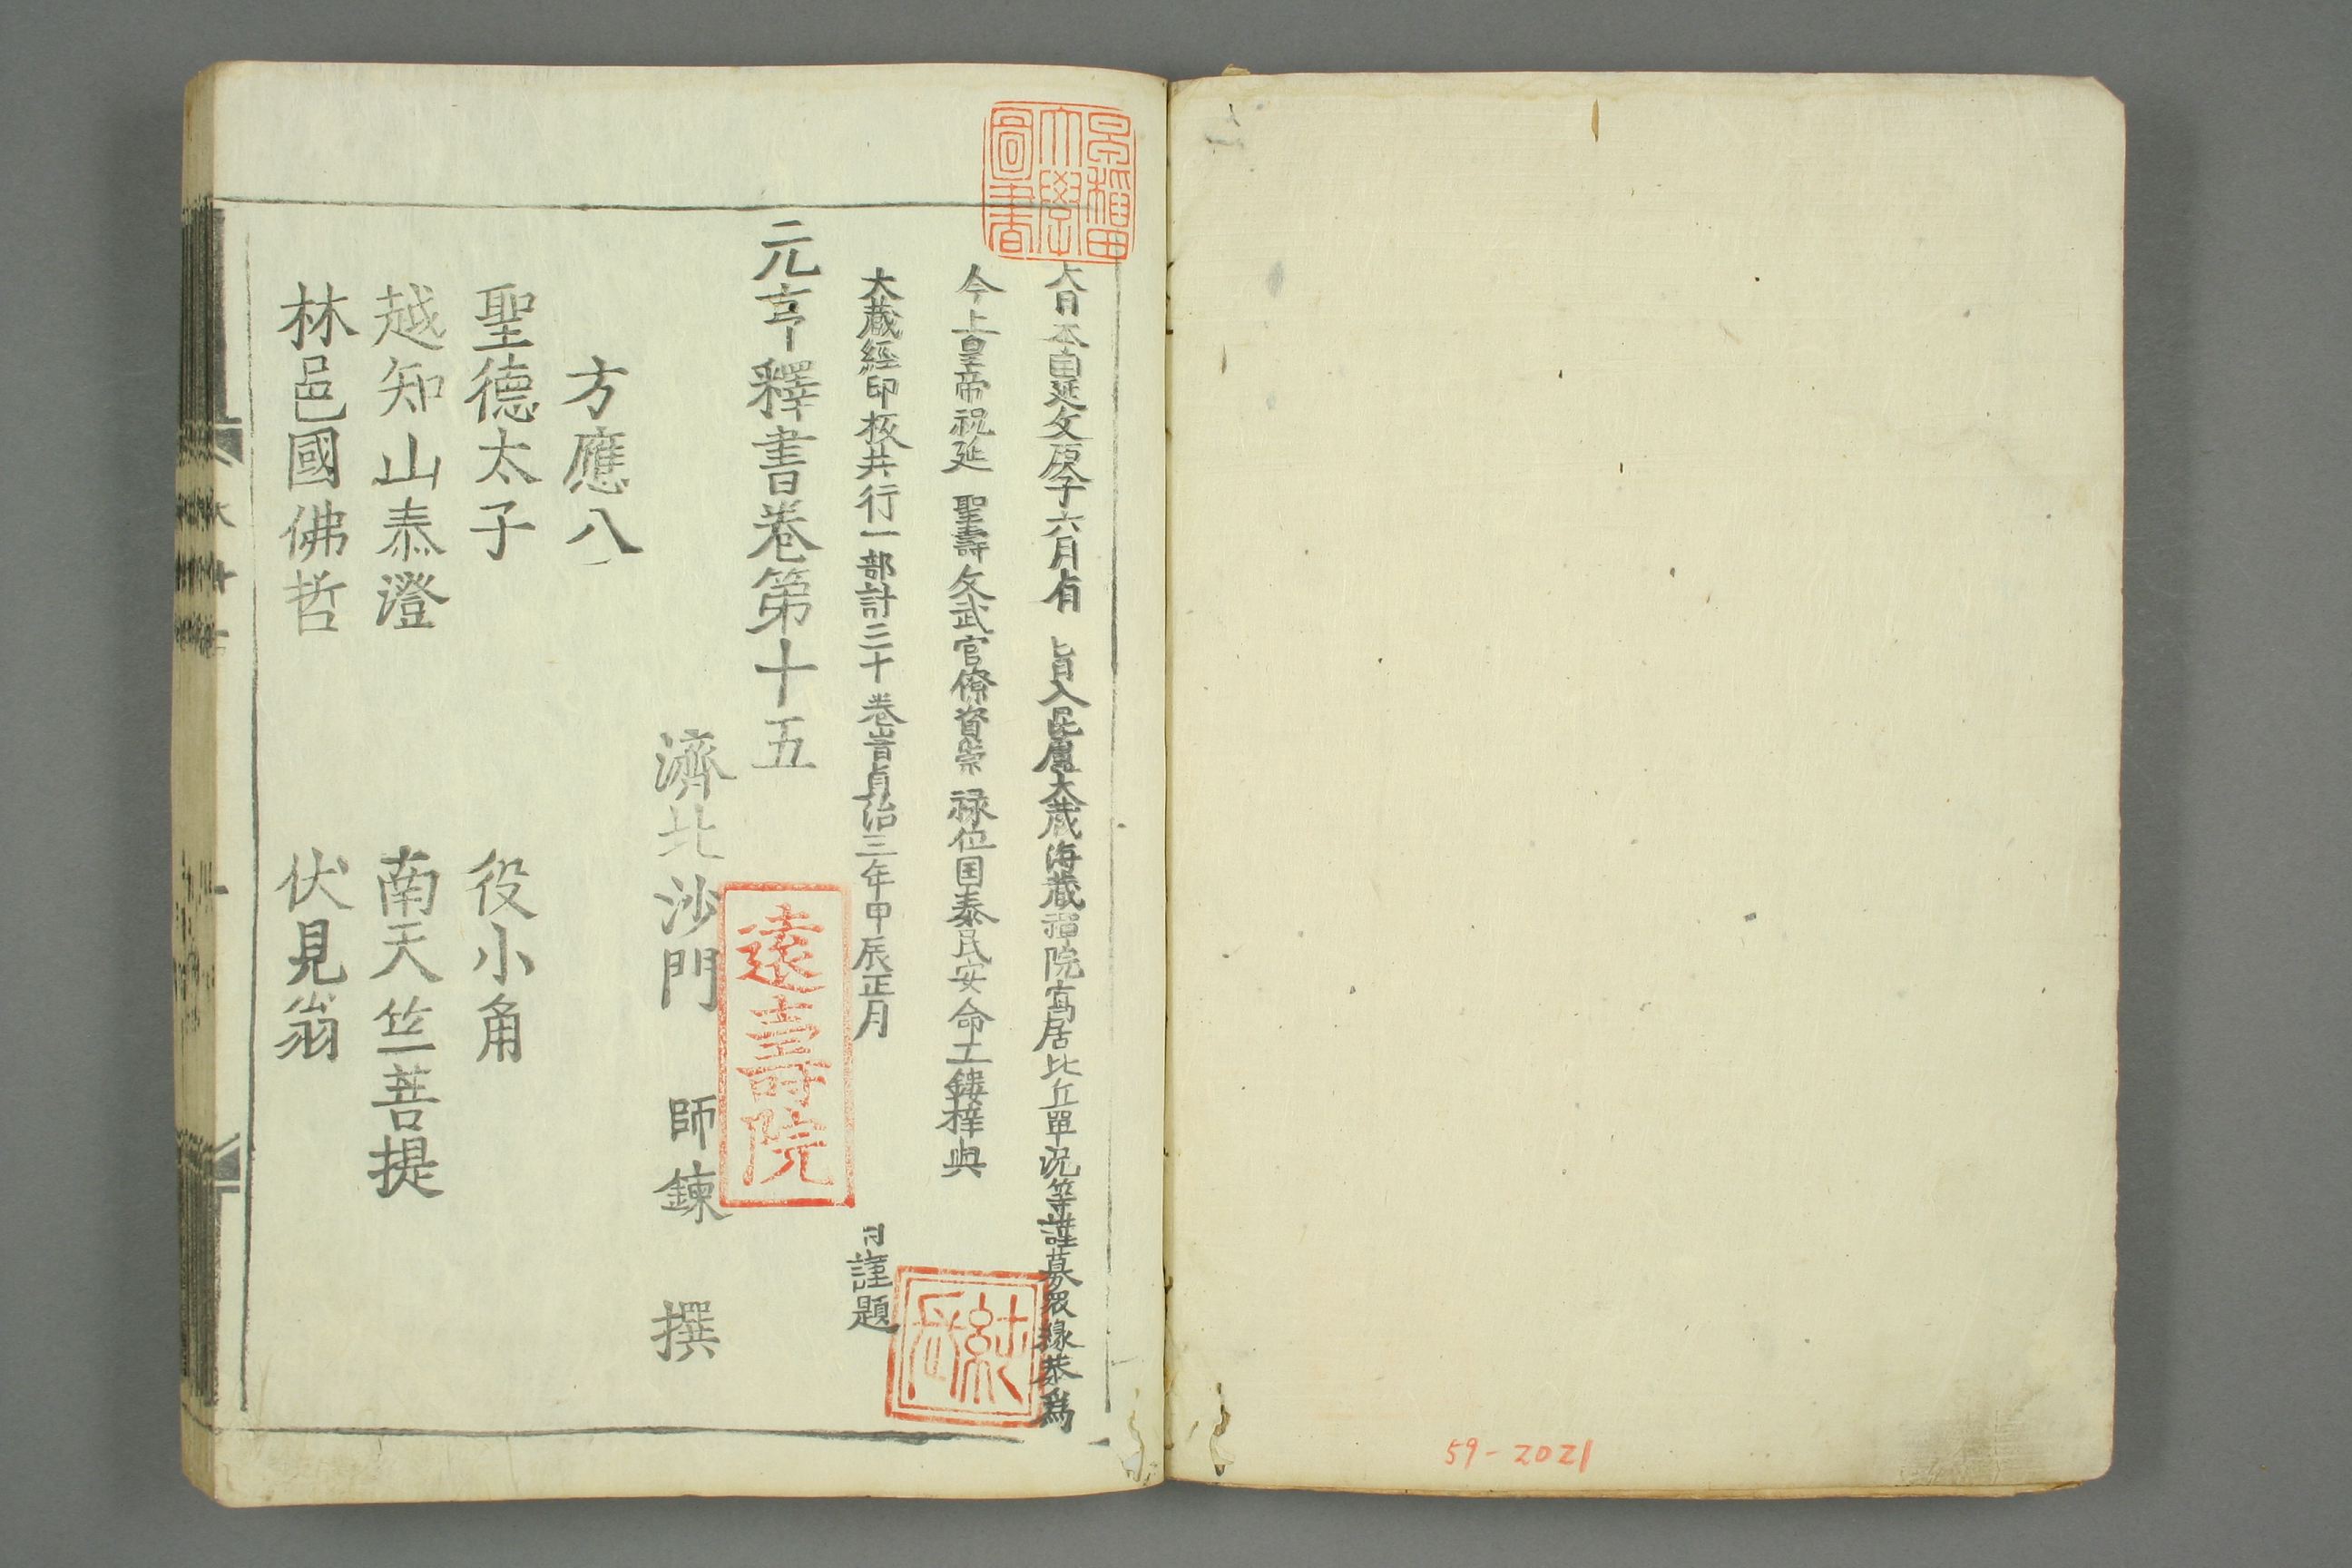 大日本國延文庚子六月有　旨入毘盧大藏海藏禪院寓居比丘單況等謹募眾緣恭爲
今上皇帝祝延　聖壽文武官僚資崇　祿位国泰民安命工鏤梓與
大藏經印板共行一部計三十卷旹貞治三年甲辰正月　日謹題
元亨釋書卷第十五
濟北沙門　師鍊　撰
方應八
聖德太子　役小角
越知山泰澄　南天竺菩提
林邑國佛哲　伏見翁
早稲田大學圖書
遠壽院
59-2021